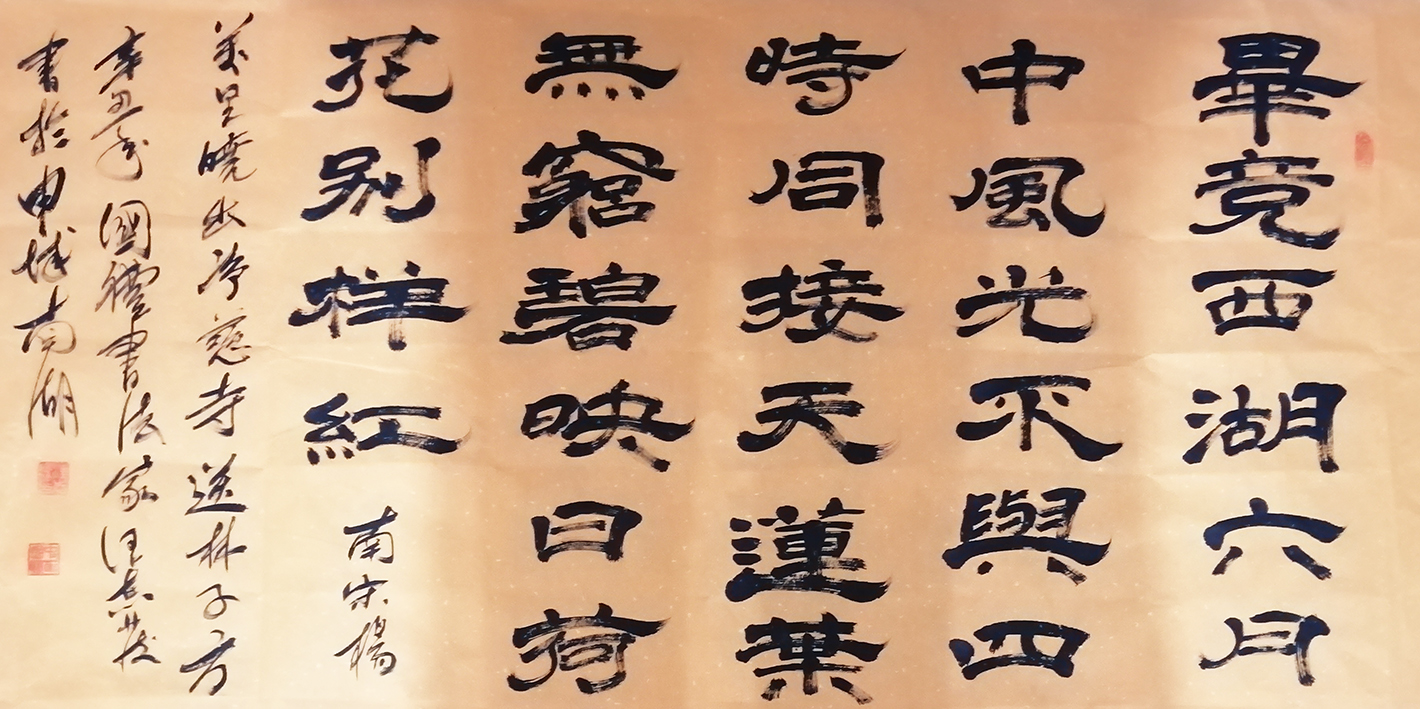 畢竟西湖六月
中風光不與四
時同接天蓮葉
無窮碧映日荷
花别样紅 南宋楊
萬里曉出净慈寺送林子方
辛丑年國禮書法家汪志
書於申城南湖